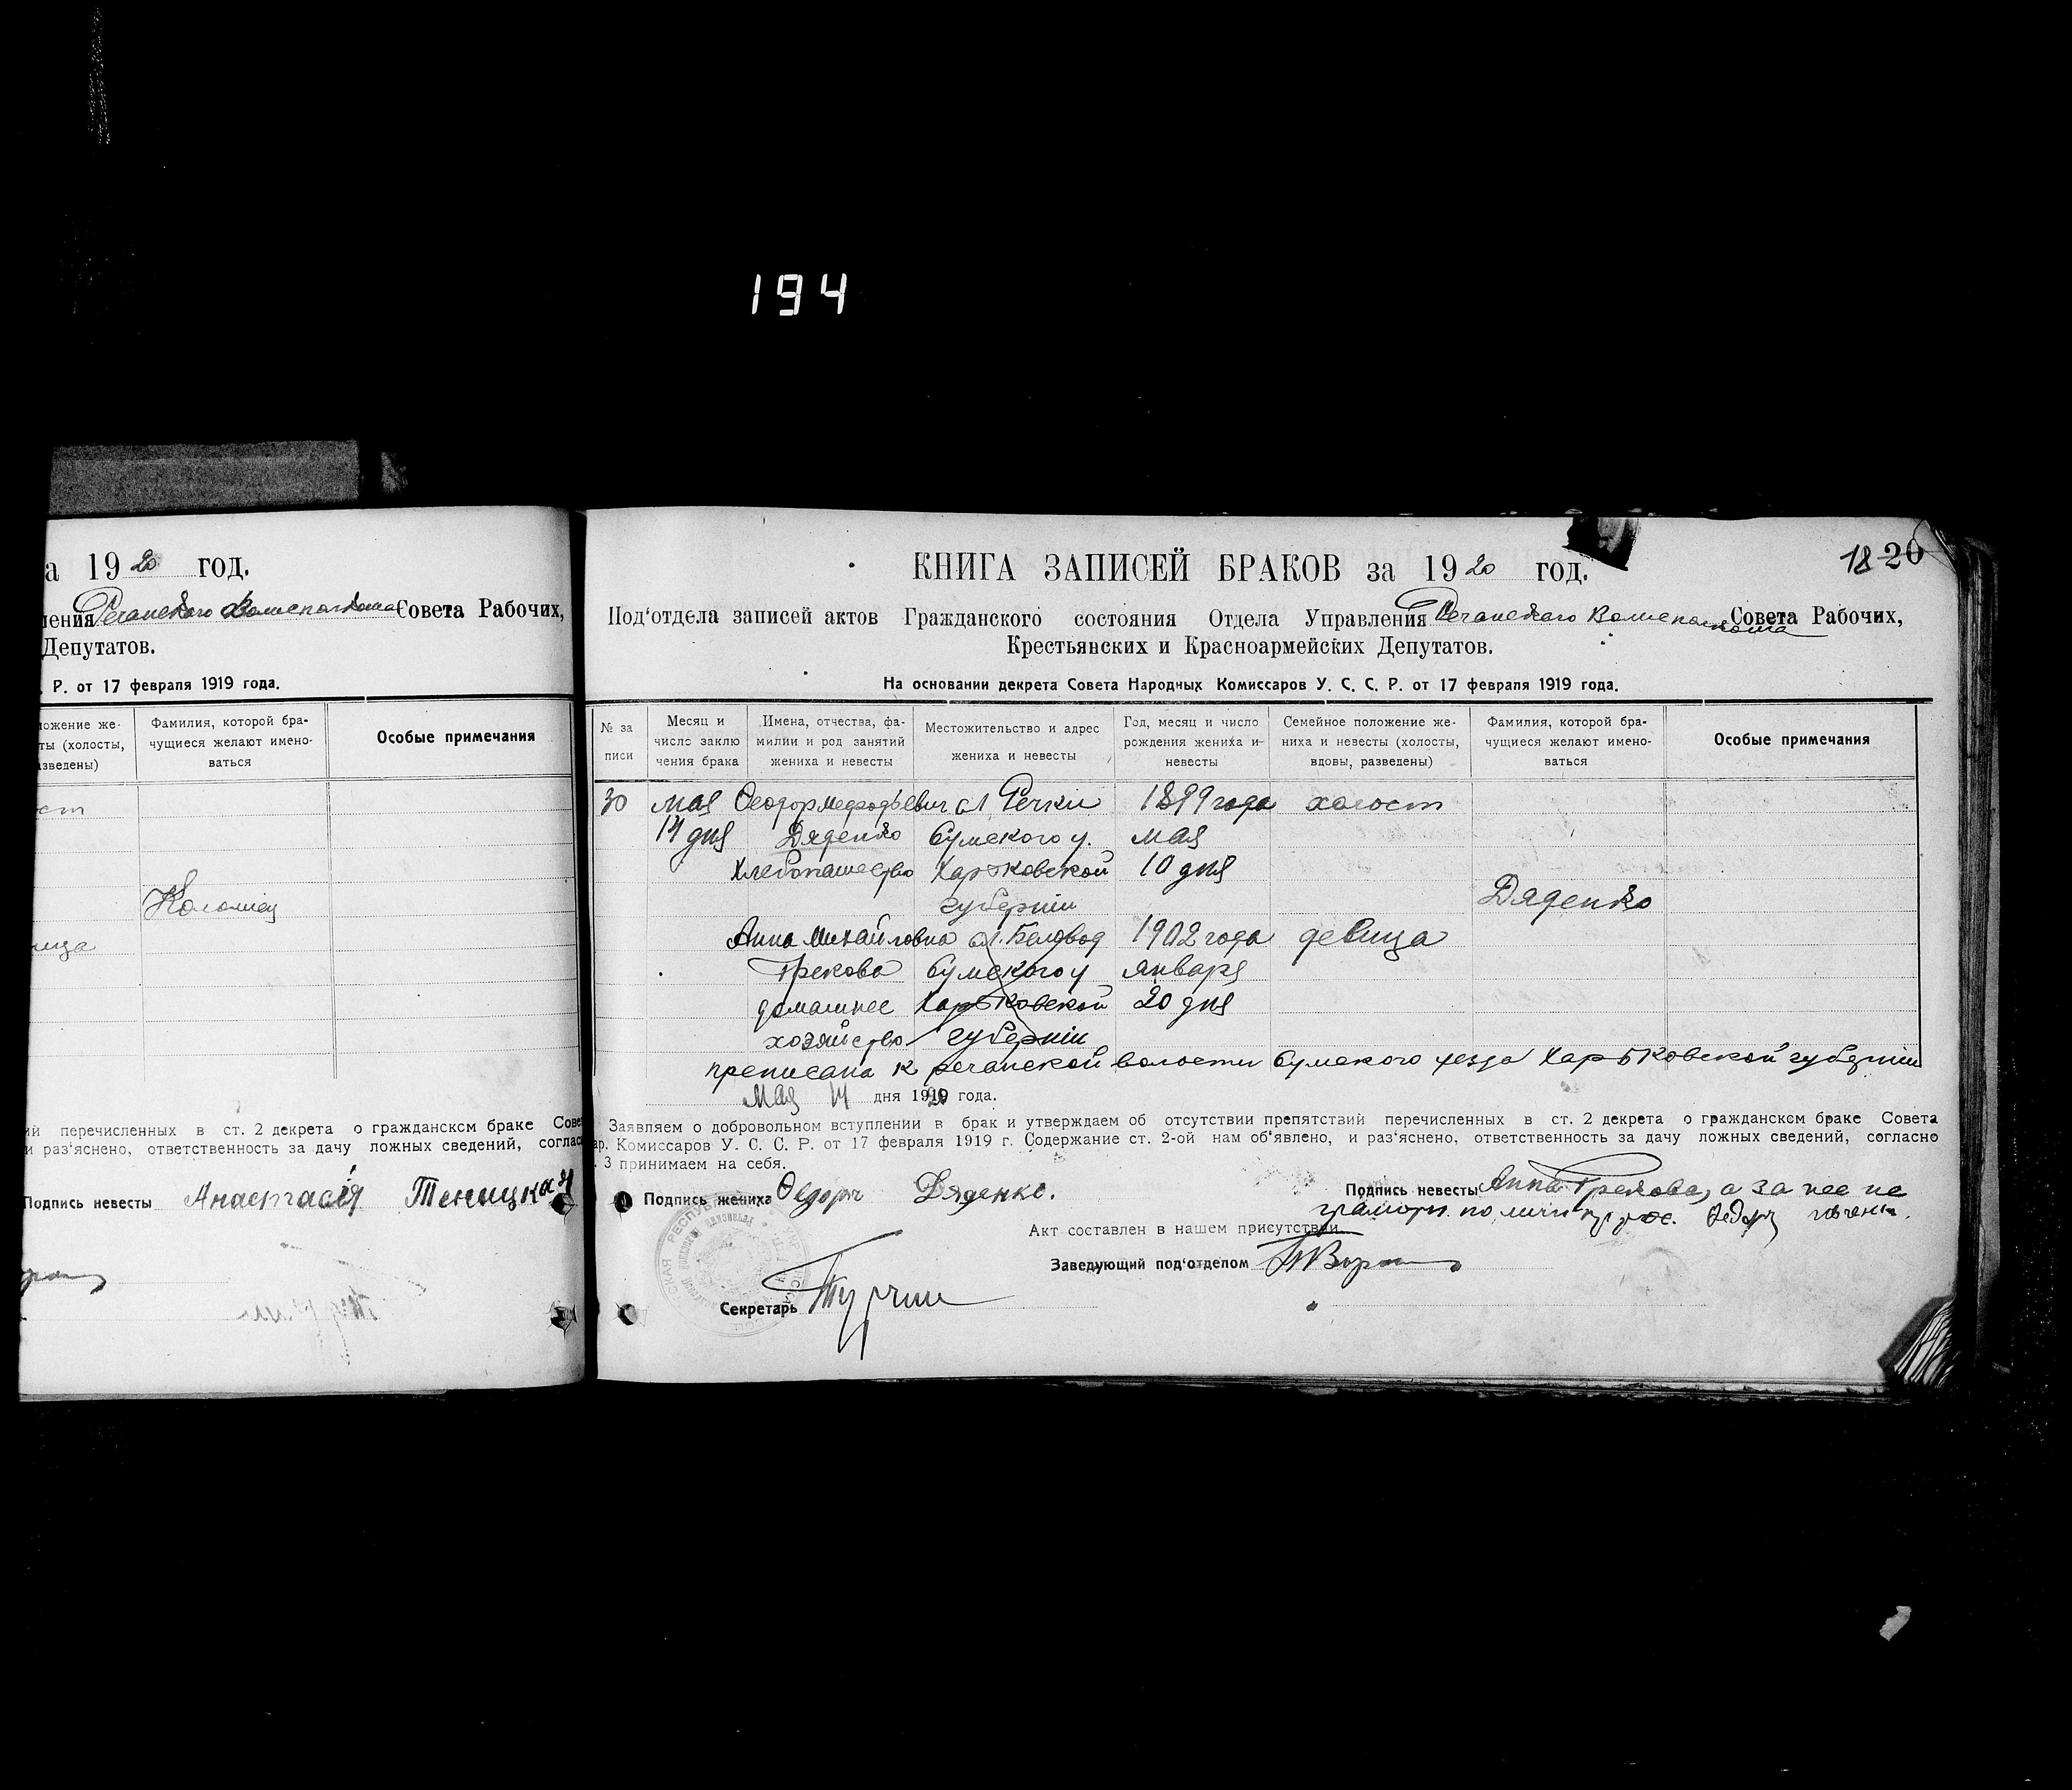 194
а 1920 год.
ления Речанского Волисполкома Совета Рабочих,
Депутатов.
. Р. от 17 февраля 1919 года.
ложение же-
ты (холосты,
азведены)
Фамилия, которой бра-
чущиеся желают имено-
ваться
Особые примечания
ст
Коломиец
ница
ий перечисленных в ст. 2 декрета о гражданском браке Сове
и раз'яснено, ответственность за дачу ложных сведений, соглас
Подпись невесты Анастасія Теницкая
18 20
КНИГА ЗАПИСЕЙ БРАКОВ за 1920 год.
Под'отдела записей актов Гражданского состояния Отдела Управления Речанского Волисполкома Совета Рабочих,
Крестьянских и Красноармейских Депутатов.
На основании декрета Совета Народных Комиссаров У. С. С. Р. от 17 февраля 1919 года.
№ за
писи
Месяц и
число заклю
чения брака
Имена, отчества, фа-
милии и род занятий
жениха и невесты
Местожительство и адрес
жениха и невесты
Год, месяц и число
рождения жениха и-
невесты
Семейное положение же-
ниха и невесты (холосты,
вдовы, разведены)
Фамилия, которой бра-
чущиеся желают имено-
ваться
Особые примечания
30 мая Феодор Мефодьевич сл Речки 1899 года холост
14 дня Дяденко Сумского у. мая
Хлебопашество Харьковской 10 дня
губерніи Дяденко
Анна Михайловна сл. Беловод 1902 года девица
Грекова Сумского у января
домашнее Харьковской 20 дня
хозяйство губерніи
преписана к речанской волости Сумского уезда Харьковской губерніи
Мая 14 дня 1920 года.
Заявляем о добровольном вступлении в брак и утверждаем об отсутствии препятствий перечисленных в ст. 2 декрета о гражданском браке Совета
ар. Комиссаров У. С. С. Р. от 17 февраля 1919 г. Содержание ст. 2-ой нам об'явлено, и раз'яснено, ответственность за дачу ложных сведений, согласно
. 3 принимаем на себя.
Подпись жениха Федоръ Дяденко.
Подпись невесты Анна Грекова, а за нее не
грамотн. по личн
Акт составлен в нашем присутствии
Заведующий под'отделом
Секретарь